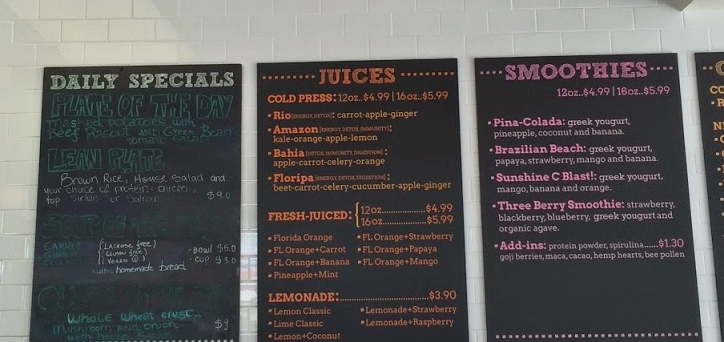 DAILY SPECIALS
PLATE OF THE DAY
Mashed potatoes with
Beef Ragout AND Green Bean
Tomato Salad
LEAN PLATE
Brown Rice, House Salad and
your choice of protein: chicken,
top Sirloin or Salmon
$9.0
(Lactose free)
(Gluten free)
(Vegan)
BOWL $5.0
CUP $3.0
with homemade bread
Whole Wheat Crust,
Mushroom and onion
$9
JUICES
COLD PRESS: 12oz..$4.99 | 16oz..$5.99
• Rio [ENERGY, DETOX]: carrot-apple-ginger
• Amazon [ENERGY, DETOX, IMMUNITY]:
kale-orange-apple-lemon
• Bahia [DETOX, IMMUNITY, DIGESTION]:
apple-carrot-celery-orange
• Floripa [ENERGY, DETOX, DIGESTION]:
beet-carrot-celery-cucumber-apple-ginger
FRESH-JUICED: { 12oz......................$4.99
16oz......................$5.99
• Florida Orange
• FL Orange+Carrot
• FL Orange+Banana
• Pineapple+Mint
• FL Orange+Strawberry
• FL Orange+Papaya
• FL Orange+Mango
LEMONADE:..............................$3.90
• Lemon Classic
• Lime Classic
• Lemon+Coconut
• Lemonade+Strawberry
• Lemonade+Raspberry
SMOOTHIES
12oz..$4.99 | 16oz..$5.99
• Pina-Colada: greek yogurt,
pineapple, coconut and banana.
• Brazilian Beach: greek yogurt,
papaya, strawberry, mango and banana.
• Sunshine C Blast!: greek yogurt,
mango, banana and orange.
• Three Berry Smoothie: strawberry,
blackberry, blueberry, greek yogurt and
organic agave.
• Add-ins: protein powder, spirulina......$1.30
goji berries, maca, cacao, hemp hearts, bee pollen